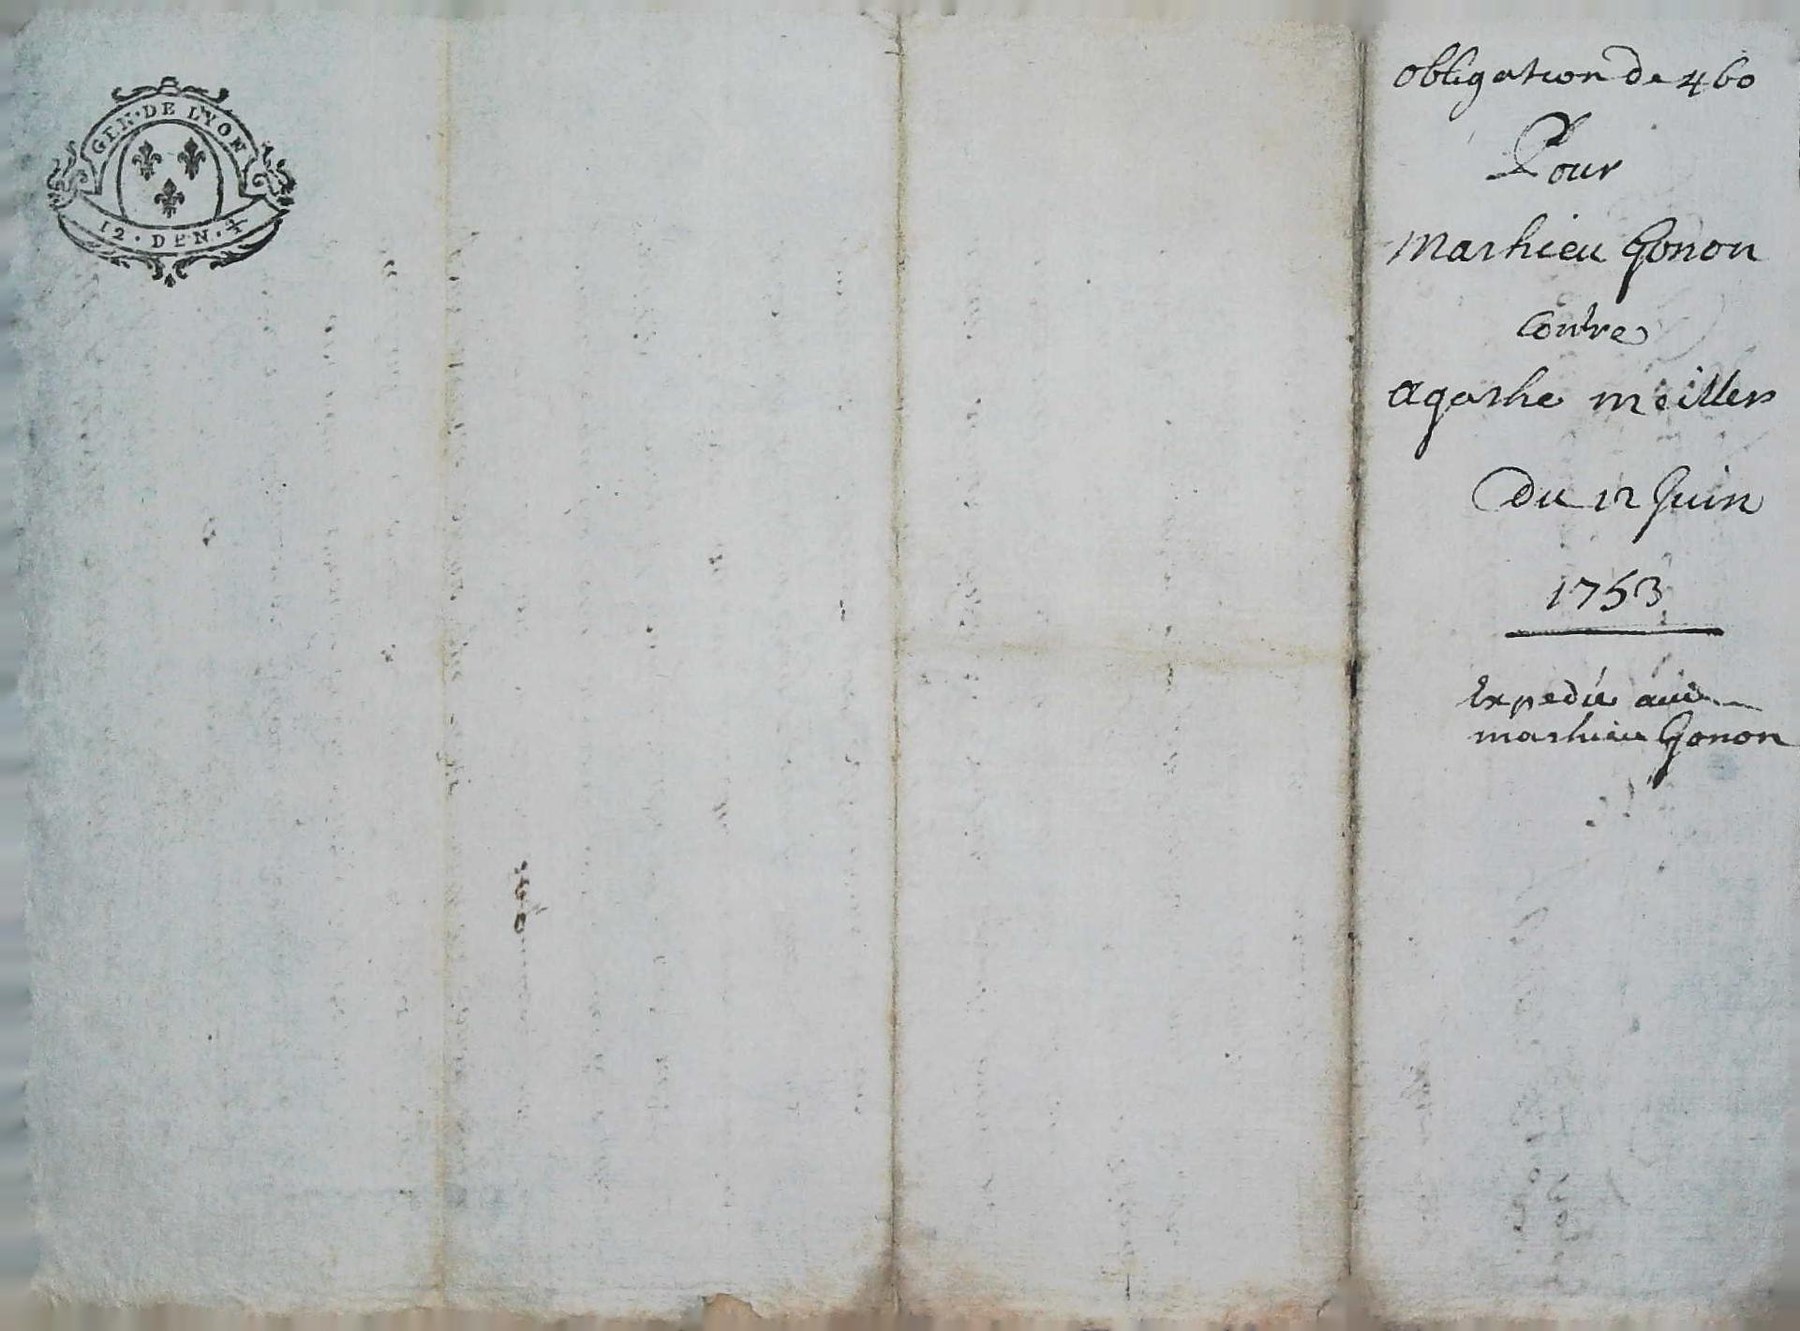 GEN·DE LYON
12·DEN·
obligation de 460
Pour
Mathieu Gonon
Contre
agathe meiller
Du 12 Juin
1753
Expedié aud
mathieu Gonon